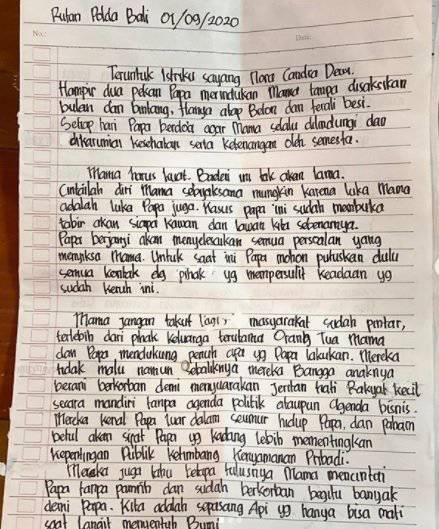 Rutan Polda Bali 01/09/2020
No.:
Date:
Teruntuk Istriku sayang Nora Candra Dewi.
Hampir dua pekan Papa merindukan Mama tanpa disaksikan
bulan dan bintang, Hanya atap Beton dan terali besi.
Setiap hari Papa berdoa agar Mama selalu dilindungi dan
dikaruniai kesehatan serta ketenangan oleh semesta.
Mama harus kuat. Badai ini tak akan lama.
Cintailah diri Mama sebijaksana mungkin karena luka Mama
adalah luka Papa juga. Kasus papa ini sudah membuka
tabir akan siapa kawan dan lawan kita sebenarnya.
Papa berjanji akan menyelesaikan semua persoalan yang
menyiksa Mama. Untuk saat ini Papa mohon putuskan dulu
semua kontak dg pihak yg mempersulit keadaan yg
sudah keruh ini.
Mama jangan takut lagi, masyarakat sudah pintar,
terlebih dari pihak keluarga terutama Orang Tua Mama
dan Papa mendukung penuh apa yg Papa lakukan. Mereka
tidak malu namun sebaliknya mereka Bangga anaknya
berani berkorban demi menyuarakan Jeritan hati Rakyat kecil
secara mandiri tanpa agenda politik ataupun agenda bisnis.
Mereka kenal Papa luar dalam seumur hidup Papa, dan paham
betul akan sifat Papa yg kadang lebih mementingkan
kepentingan Publik ketimbang Kenyamanan Pribadi.
Mereka juga tahu betapa tulusnya Mama mencintai
Papa tanpa pamrih dan sudah berkorban begitu banyak
demi Papa. Kita adalah sepasang Api yg hanya bisa mati
saat Langit menyentuh Bumi